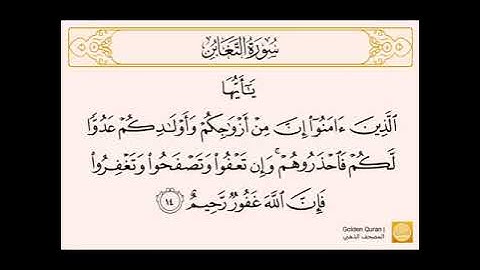 سُورَةُ التَّغَابُنِ
يَـٰٓأَيُّهَا
الَّذِينَ ءَامَنُوٓا۟ إِنَّ مِنْ أَزْوَٰجِكُمْ وَأَوْلَـٰدِكُمْ عَدُوًّا
لَّكُمْ فَٱحْذَرُوهُمْ ۚ وَإِن تَعْفُوا۟ وَتَصْفَحُوا۟ وَتَغْفِرُوا۟
فَإِنَّ ٱللَّهَ غَفُورٌ رَّحِيمٌ ١٤
Golden Quran |
المصحف الذهبي